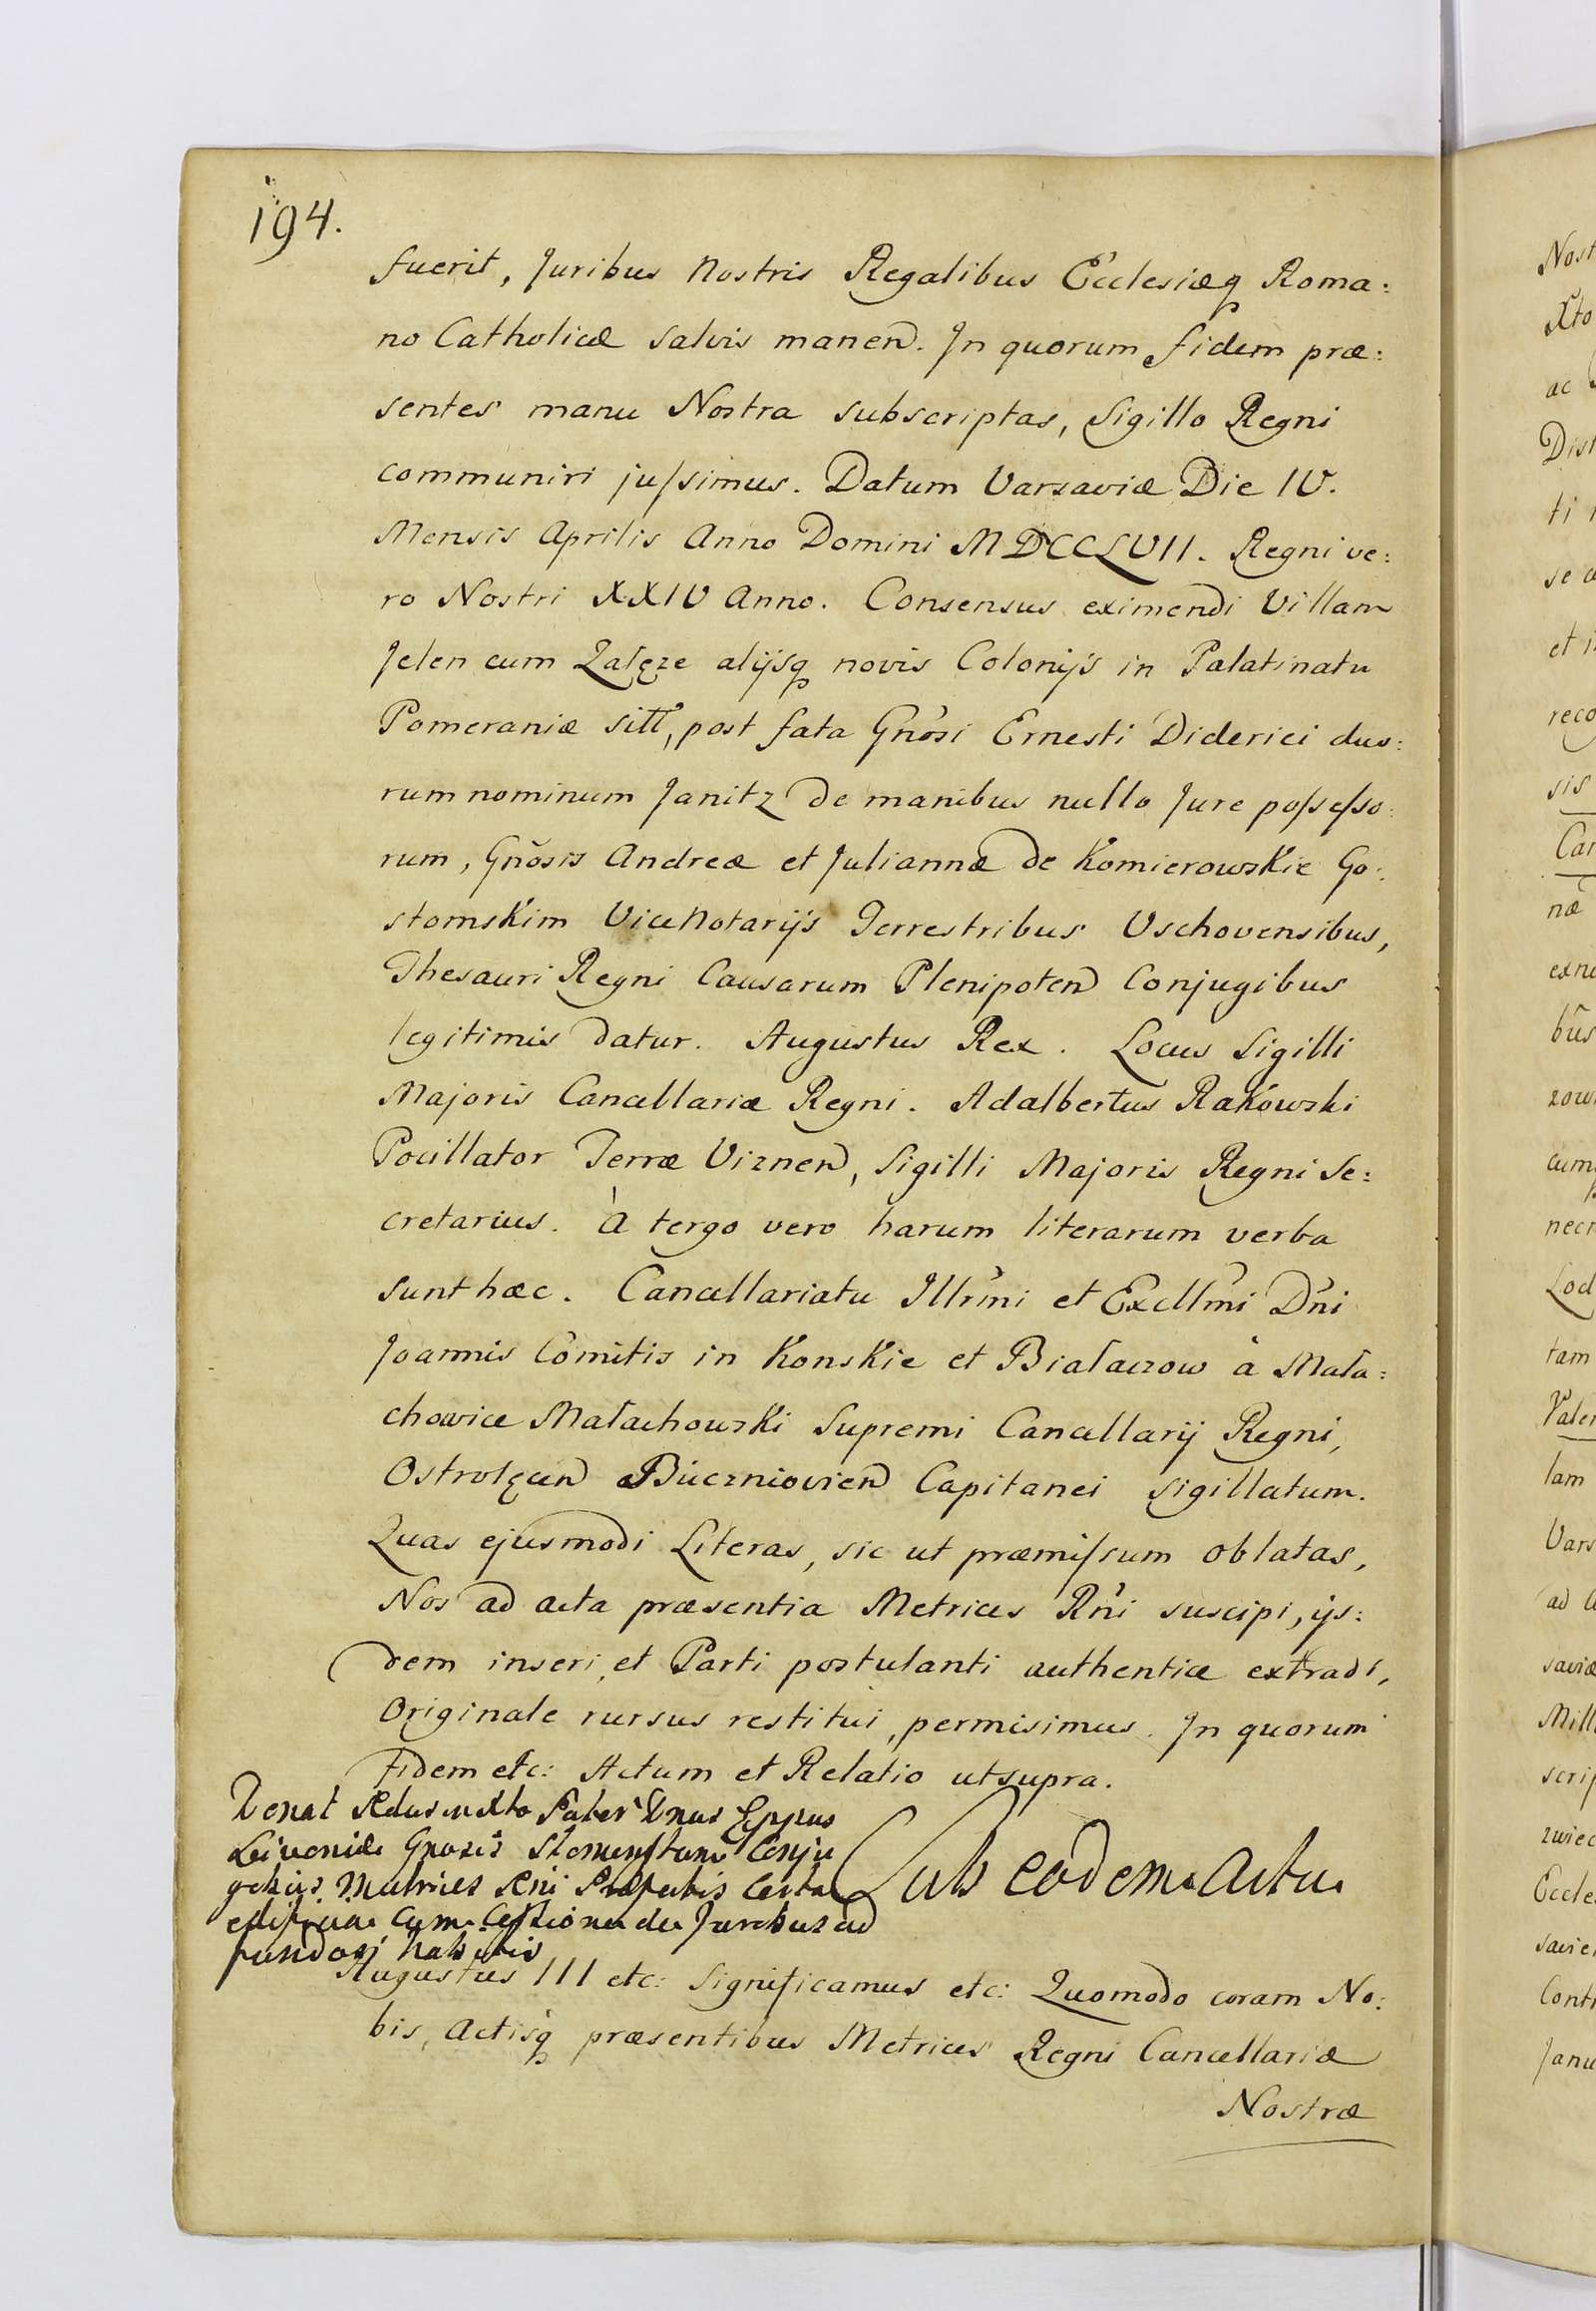 194.
fuerit, Juribus Nostris Regalibus Ecclesiæq Roma:
no Catholicæ salvis manen. In quorum fidem præ:
sentes manu Nostra subscriptas, Sigillo Regni
communiri jussimus. Datum Varsaviæ Die IV.
Mensis Aprilis Anno Domini MDCCLVII. Regni ve:
ro Nostri XXIV Anno. Consensus eximendi Villam
Jelen cum Zalęze alijsq novis Colonijs in Palatinatu
Pomeraniæ sitt, post fata Gnosi Ernesti Diderici duo:
rum nominum Janitz de manibus nullo Jure possesso:
rum, Gnosis Andreæ et Juliannæ de Komierowskie Go:
stomskim ViceNotarijs Terrestribus Vschovensibus,
Thesauri Regni Causarum Plenipoten Conjugibus
legitimis datur. Augustus Rex. Locus Sigilli
Majoris Cancellariæ Regni. Adalbertus Rakowski
Pocillator Terræ Viznen, Sigilli Majoris Regni Se:
cretarius. à tergo vero harum literarum verba
sunt hæc. Cancellariatu Illrmi et Excllmi Dni
Joannis Comitis in Konskie et Białaczow à Mała:
chowice Małachowski Supremi Cancellarij Regni,
Ostrołęcen Capitanei sigillatum.
Quas ejusmodi Literas, sic ut præmissum oblatas,
Nos ad acta præsentia Metrices Rni suscipi, ijs:
dem inseri, et Parti postulanti authentice extradi,
Originale rursus restitui, permisimus. In quorum
fidem etc: Actum et Relatio ut supra.
Donat Rdus in Xto Pater Dnus Eppus
Livoniæ Gnosis Conju
gibus Metrices Rni Præfectis Certa
edificia cum Cessione de Juribus ad
fundos habitis
Sub eodem Actu
Augustus III etc: Significamus etc: Quomodo coram No:
bis, Actisq præsentibus Metrices Regni Cancellariæ
Nostræ
Nost
Xto
ac
Dist
ti
se
et
reco
sis
Can
næ
bus
zow
cum
necn
Lod
tam
Valen
lam
Vars
ad
saviæ
Mill
scrip
zwiec
Eccle
savien
Contr
Janu